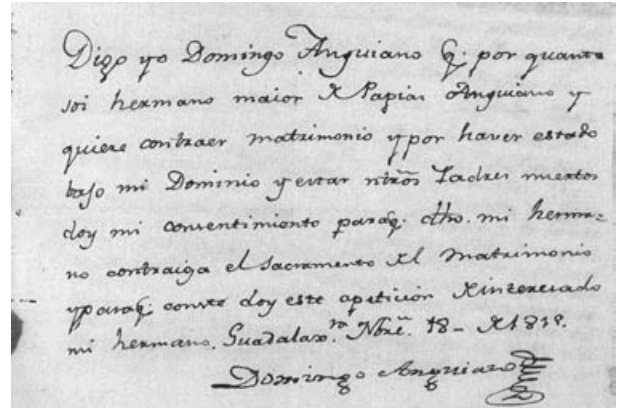 Digo yo Domingo Anguiano q. por quanto
soi hermano maior de Papias Anguiano y
quiere contraer matrimonio y por haver estado
bajo mi Dominio y estar ntrõs Padres muertos
doy mi consentimiento paraq. dho. mi herma=
no contraiga el sacramento del Matrimonio
yparaq. conste doy este apetición de interezado
mi hermano. Guadalax.ra Nbre. 18- de
Domingo Anguiano